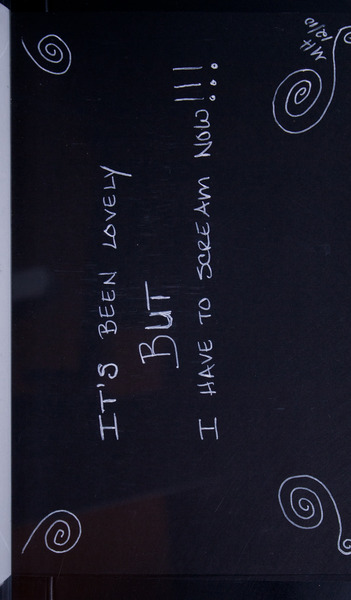 IT'S BEEN LOVELY
BUT
I HAVE TO SCREAM NOW!!!
MH
12/10